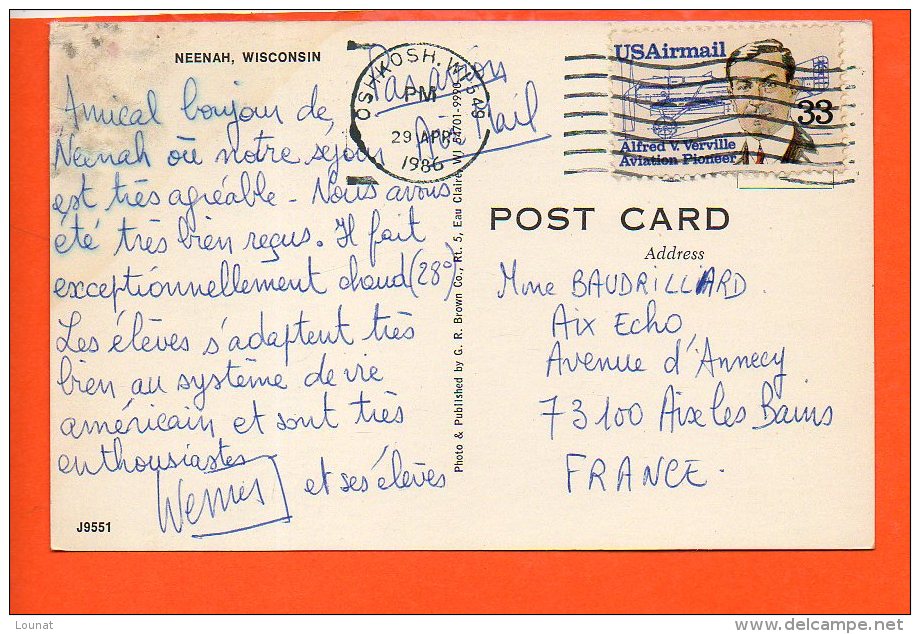 NEENAH, WISCONSIN
Par avion
Air Mail
OSHKOSH, WI 549
PM
29 APR
1986
USAirmail
33
Alfred V. Verville
Aviation Pioneer
Amical bonjour de
Neenah où notre séjour
est très agréable - Nous avons
été très bien reçus. Il fait
exceptionnellement chaud (28°)
Les élèves s'adaptent très
bien au système de vie
américain et sont très
enthousiastes
et ses élèves
J9551
Photo & Published by G. R. Brown Co., Rt. 5, Eau Claire, WI 54701-9990
POST CARD
Address
Mme BAUDRILLARD.
Aix Echo
Avenue d'Annecy
73100 Aix les Bains
FRANCE.
Lounat
www.delcampe.net